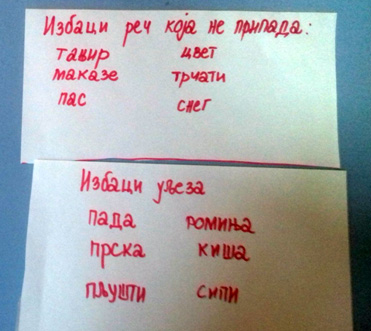 Избаци реч која не припада:
тањир цвет
маказе трчати
пас снег
Избаци уљеза
пада ромиња
прска киша
пљушти сипи